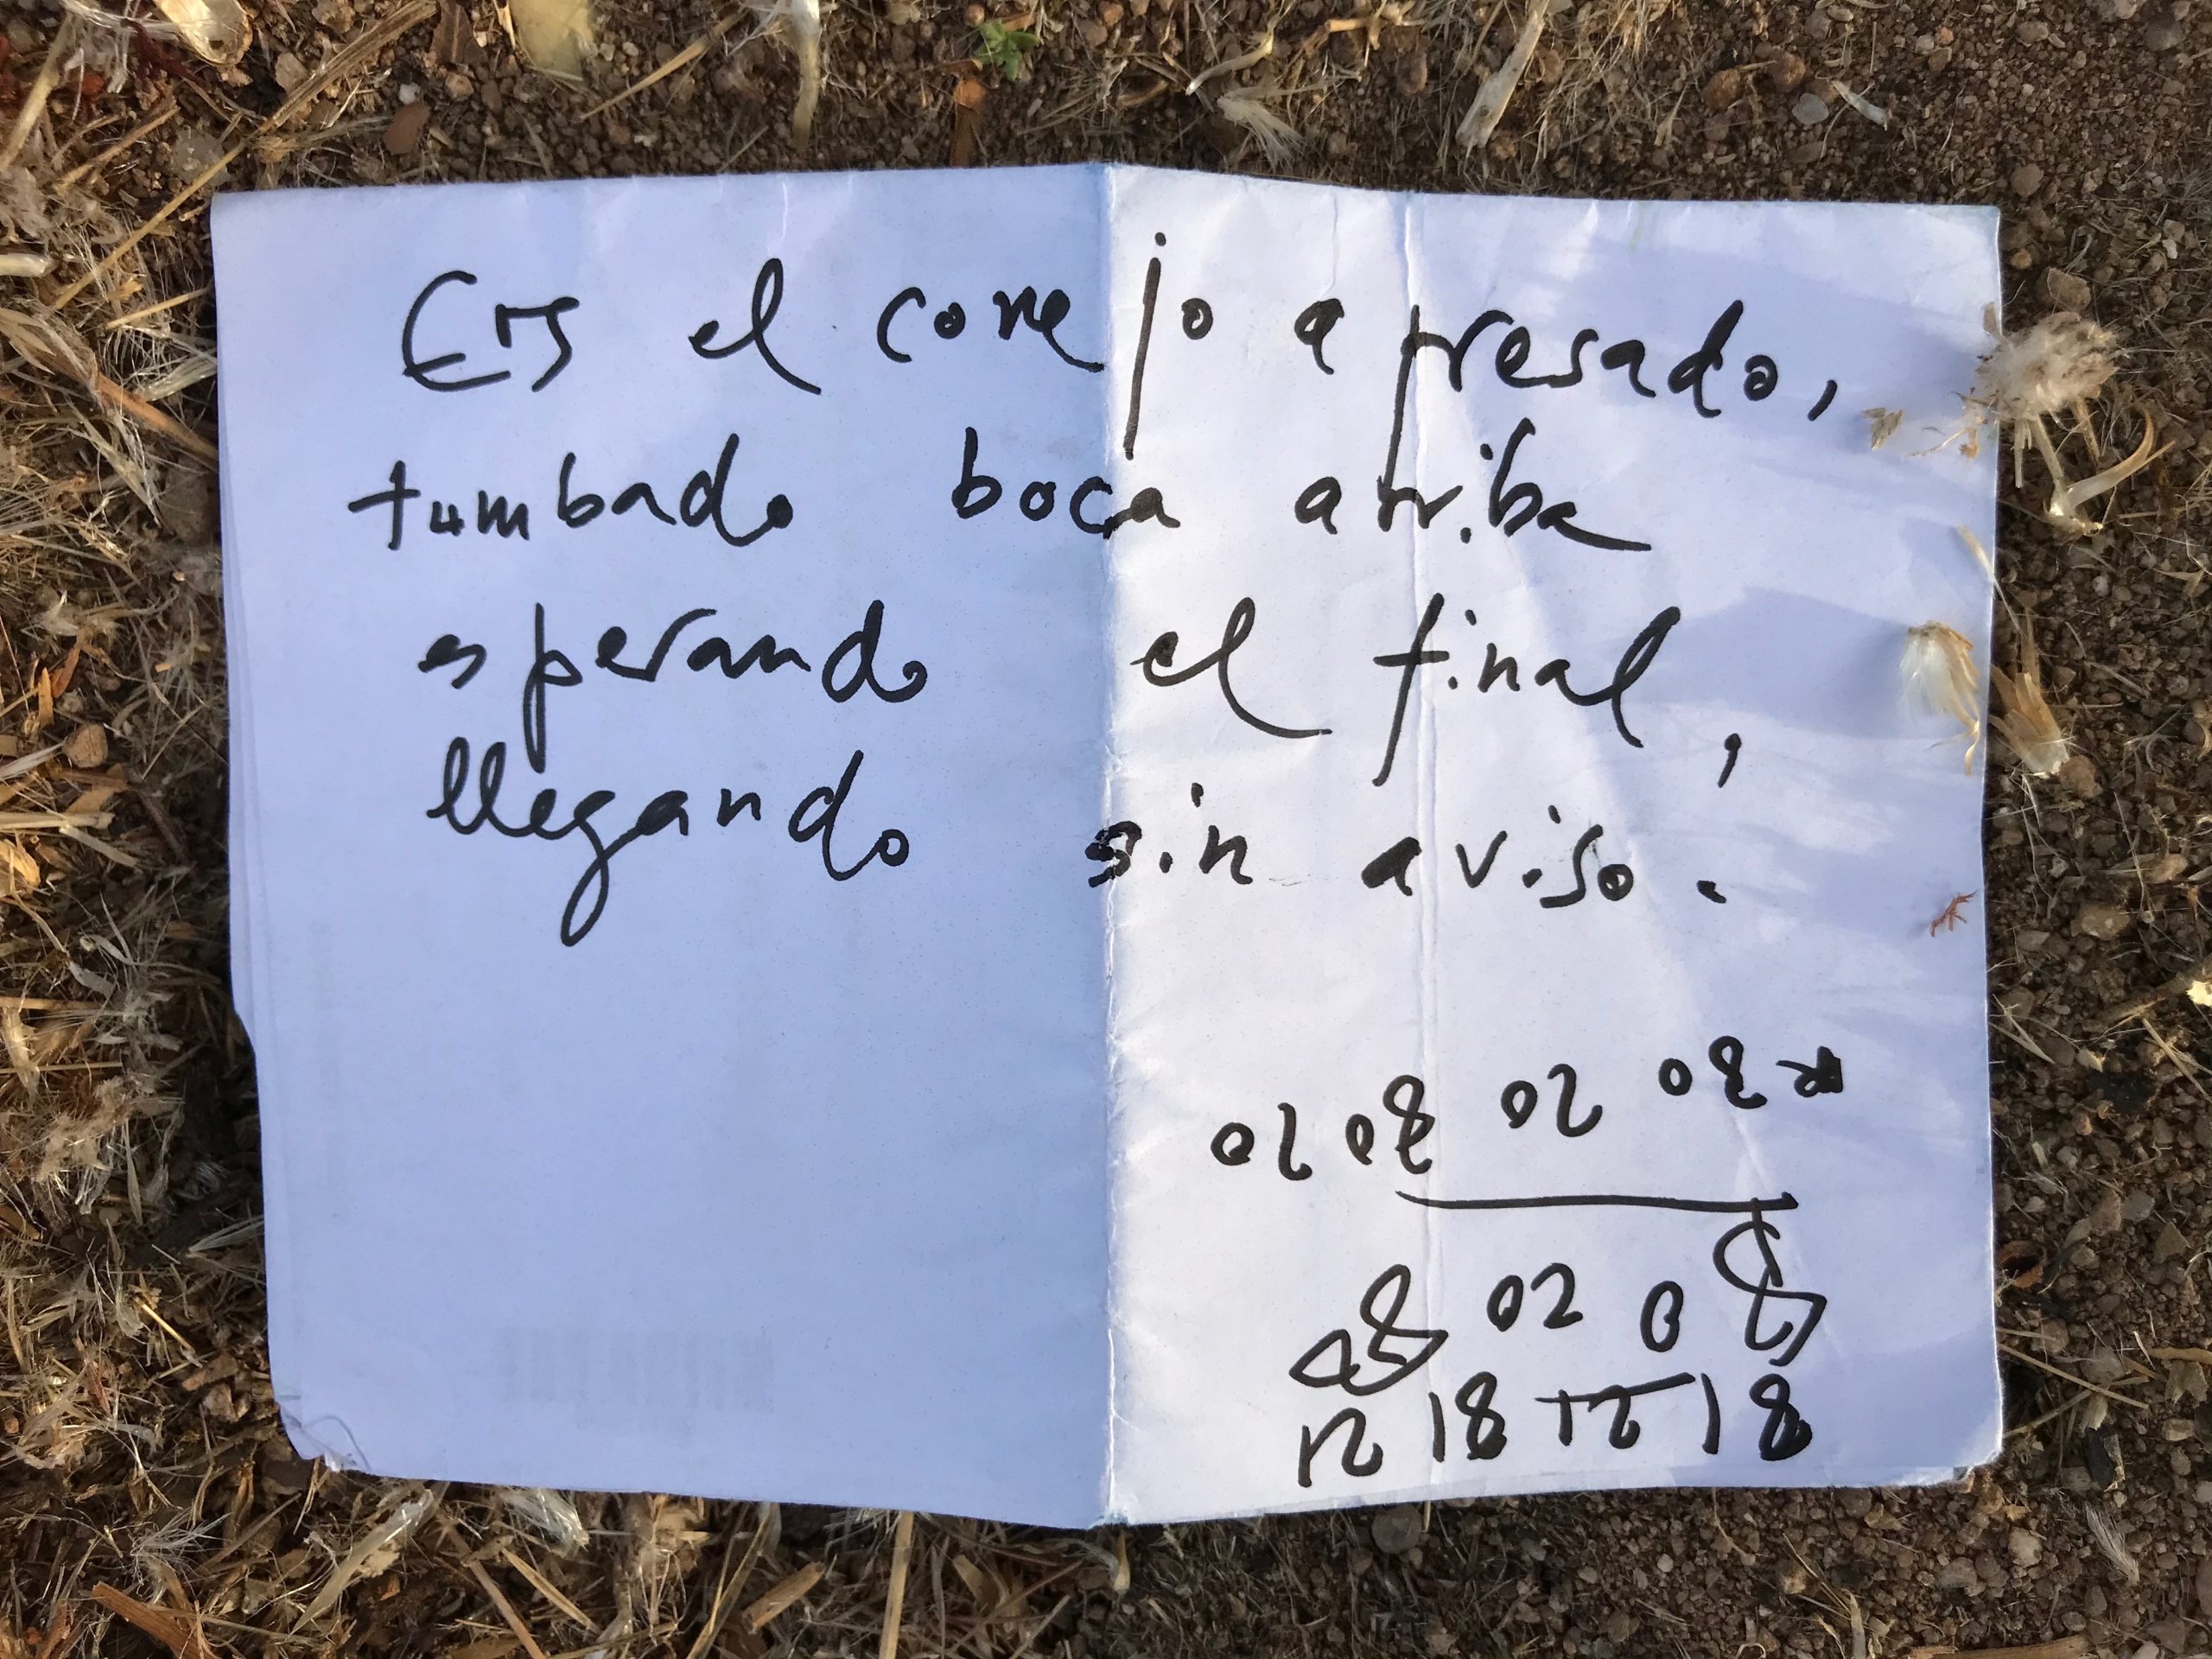 Ers el conejo apresado,
tumbado boca arriba
esperando el final,
llegando sin aviso.
02 20
02 0
12 18 12 18